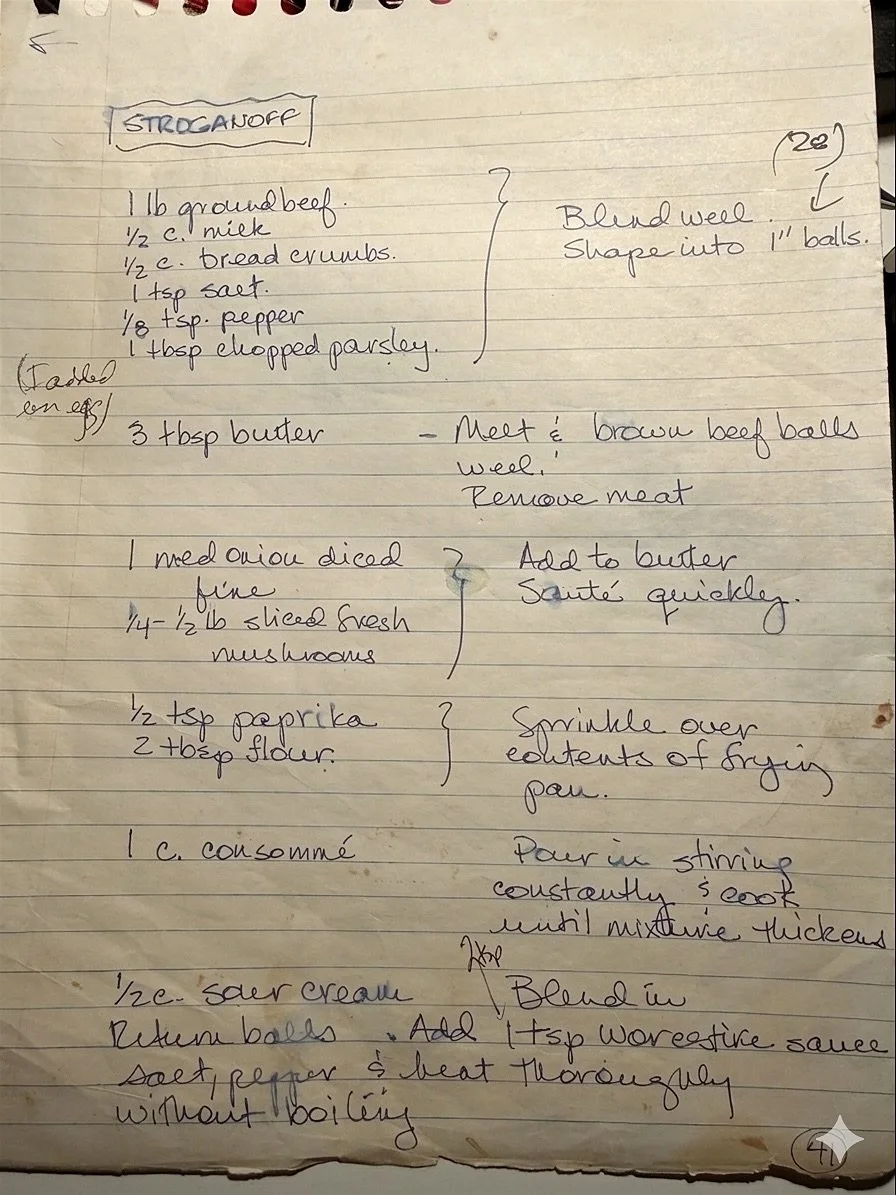 STROGANOFF
(28)
1 lb ground beef.
½ c. milk
½ c. bread crumbs.
1 tsp salt.
⅛ tsp. pepper
1 tbsp chopped parsley.
Blend well.
Shape into 1" balls.
(I added
an egg)
3 tbsp butter
- Melt & brown beef balls
well.
Remove meat
1 med onion diced
fine
¼-½ lb sliced fresh
mushrooms
Add to butter
Sauté quickly.
½ tsp paprika
2 tbsp flour.
Sprinkle over
contents of frying
pan.
1 c. consommé
Pour in stirring
constantly & cook
until mixture thickens
½ c. sour cream
Blend in
2 tsp
Return balls. Add 1 tsp Worcestire sauce
salt, pepper & heat thoroughly
without boiling
41